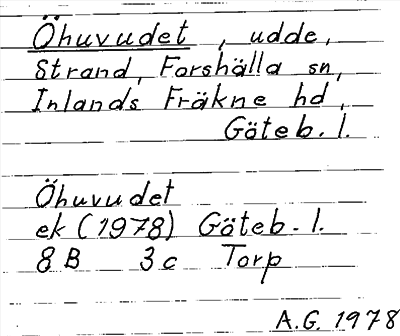 Öhuvudet, udde,
Strand, Forshälla sn,
Inlands Fräkne hd,
Göteb. l.
Öhuvudet
ek (1978) Göteb. l.
8B 3c Torp
A.G. 1978